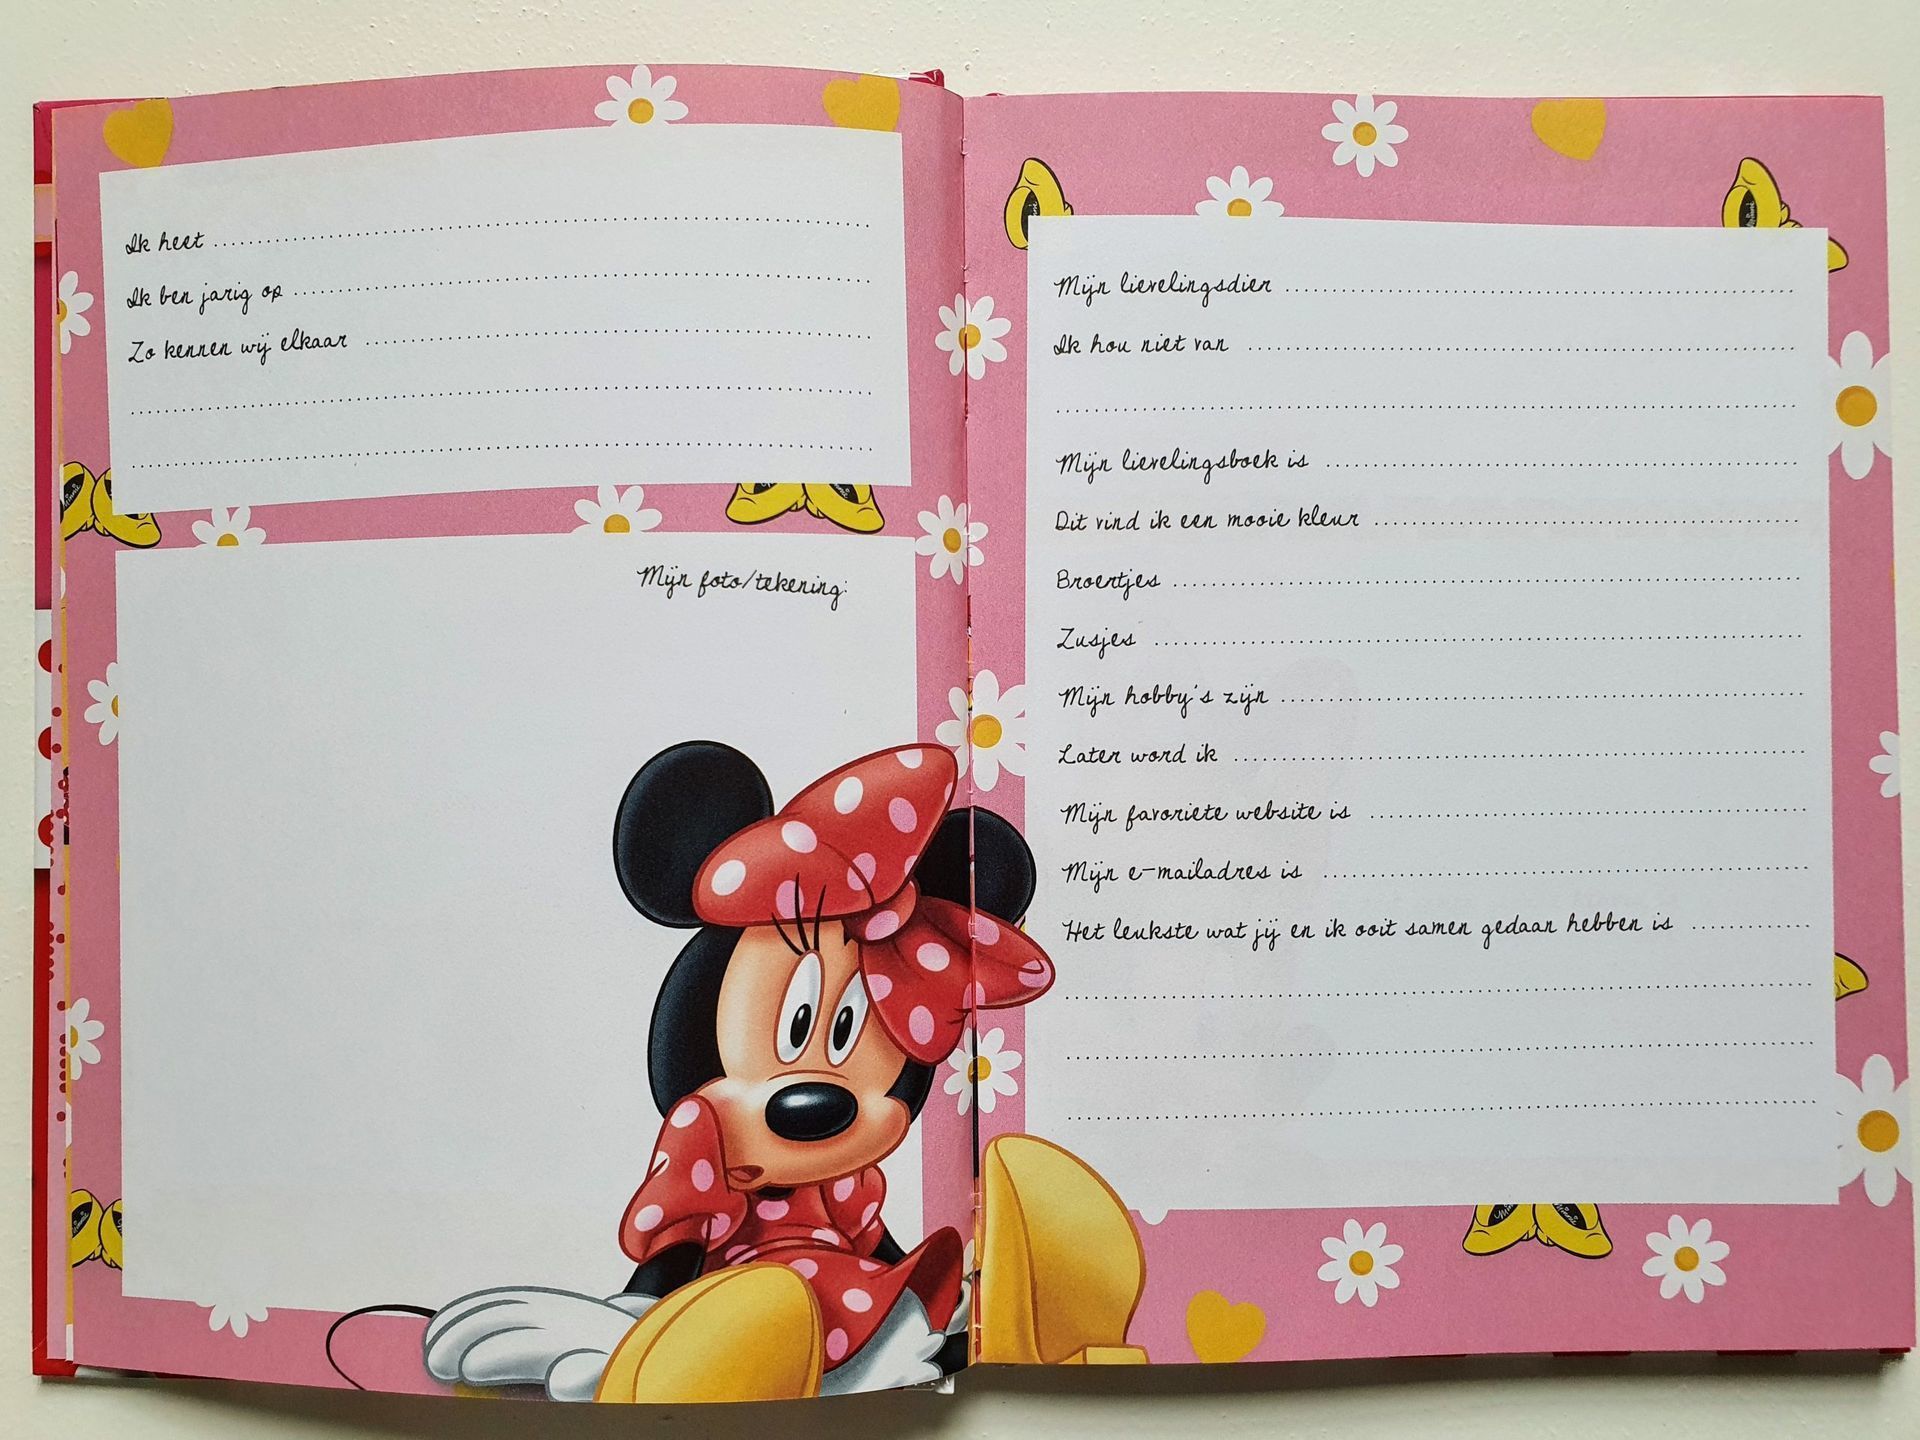 Ik heet
Ik ben jarig op
Zo kennen wij elkaar
Mijn foto/tekening:
Mijn lievelingsdier
Ik hou niet van
Mijn lievelingsboek is
Dit vind ik een mooie kleur
Broertjes
Zusjes
Mijn hobby's zijn
Later word ik
Mijn favoriete website is
Mijn e-mailadres is
Het leukste wat jij en ik ooit samen gedaan hebben is
Minnie
Minnie